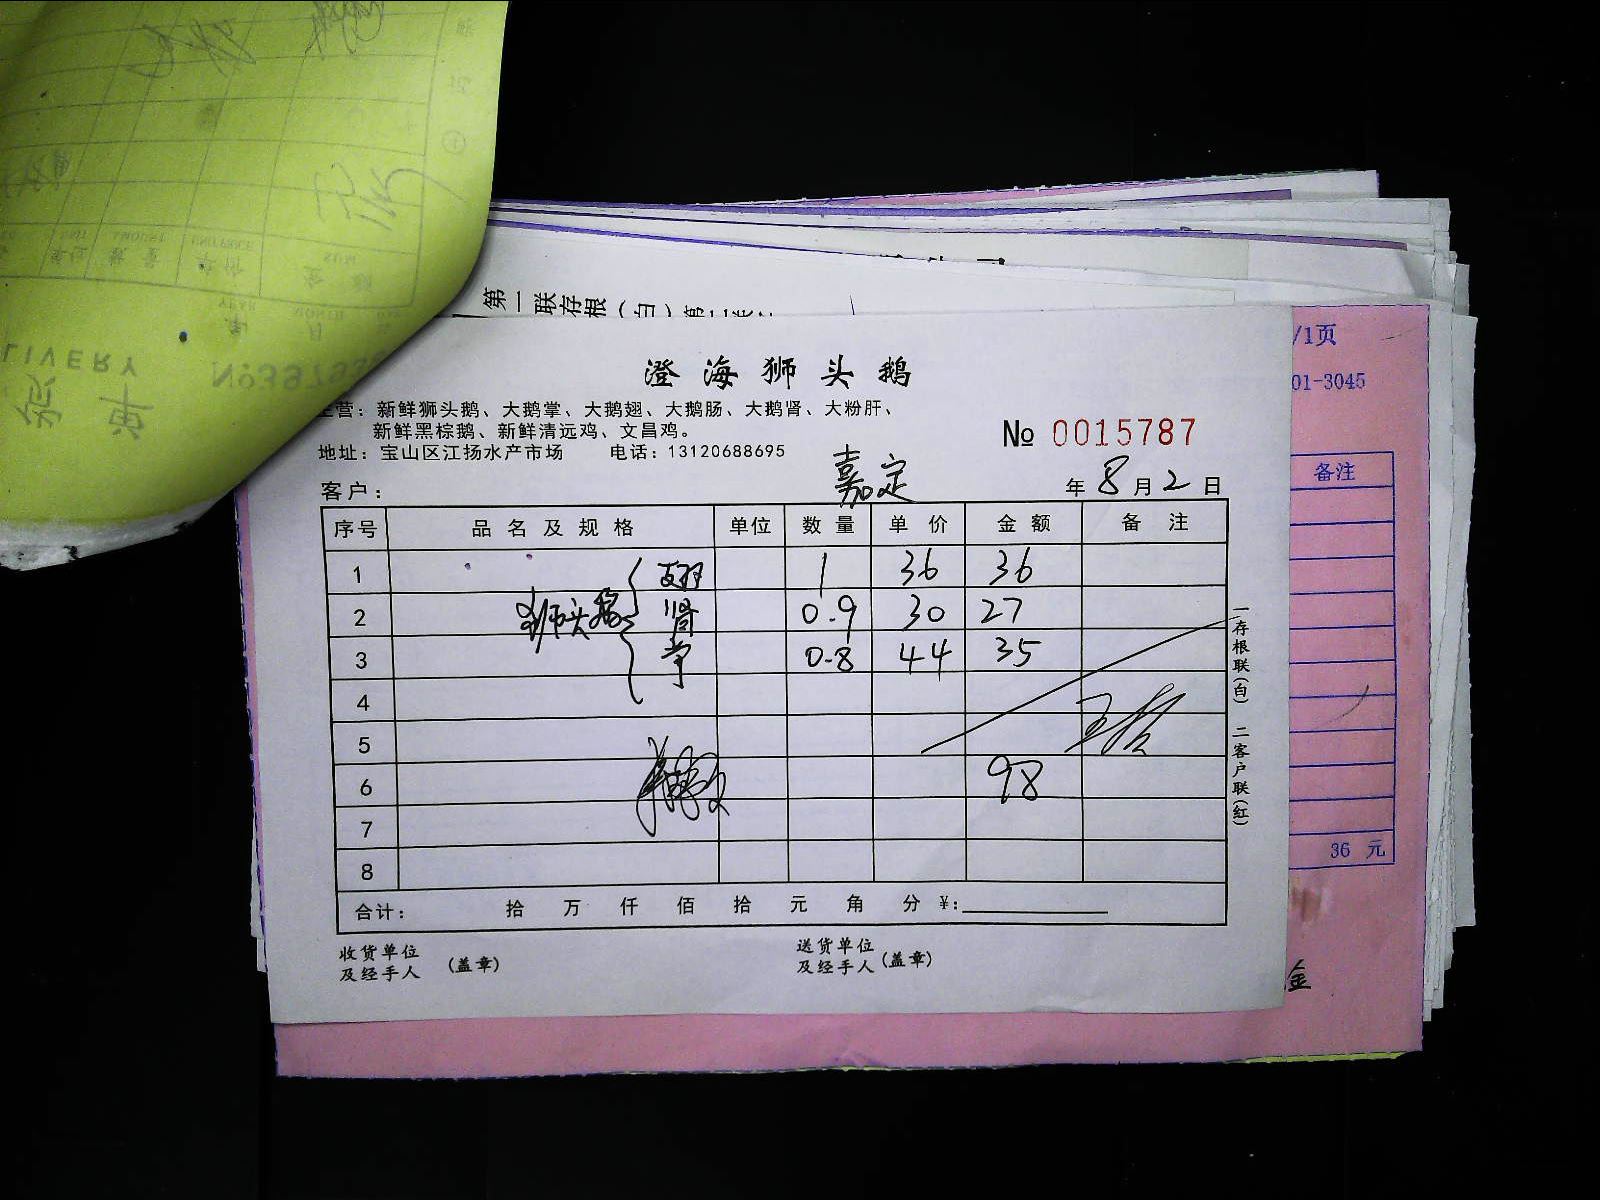 LIVERY
№397953
YEAR
MONTH
年 月
UNIT AMOUNT UNIT PRICE SUM
单位 数量 单价 金额
第一联存根(白)
/1页
01-3045
备注
36 元
金
澄海狮头鹅
主营：新鲜狮头鹅、大鹅掌、大鹅翅、大鹅肠、大鹅肾、大粉肝、
新鲜黑棕鹅、新鲜清远鸡、文昌鸡。
№ 0015787
地址：宝山区江扬水产市场 电话：13120688695
客户： 嘉定 年 8 月 2 日
序号 品名及规格 单位 数量 单价 金额 备注
1 翅 1 36 36
2 狮头鹅 肾 0.9 30 27
3 掌 0.8 44 35
4
5
6 98
7
8
合计： 拾 万 仟 佰 拾 元 角 分 ¥:
收货单位
及经手人 (盖章)
送货单位
及经手人 (盖章)
一存根联(白) 二客户联(红)